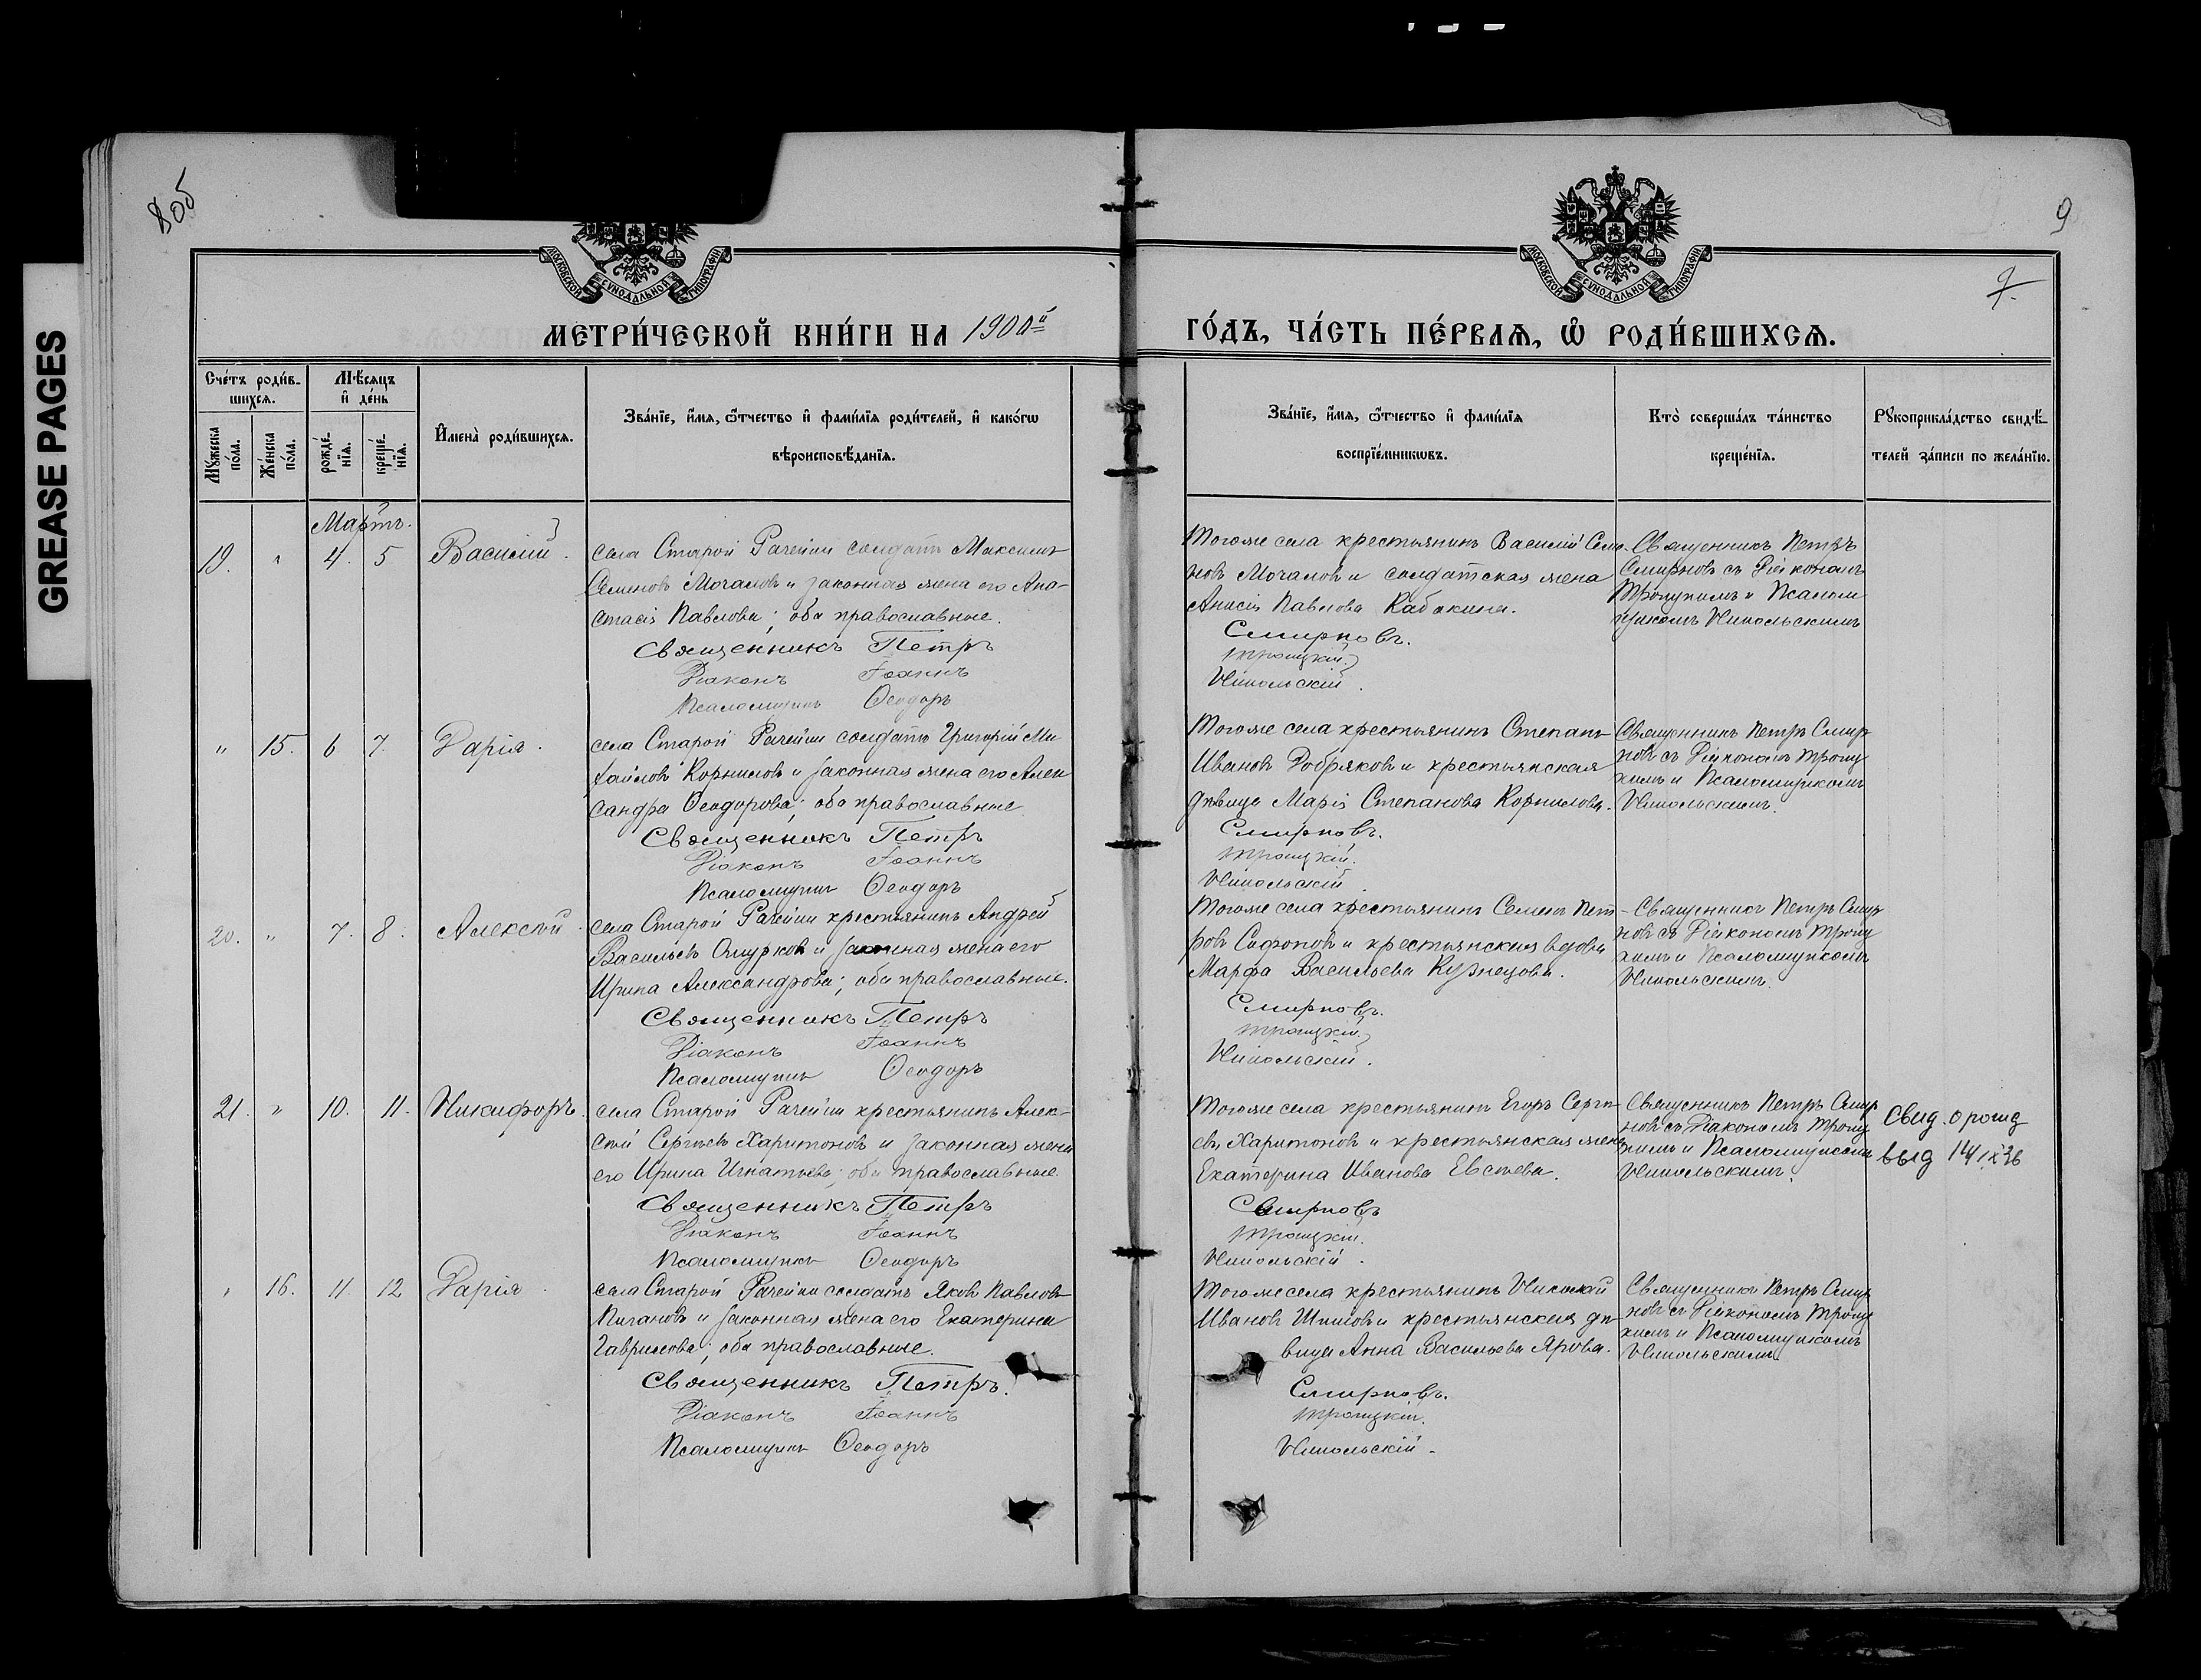 GREASE PAGES
8об
9
7.
МОСКОВСКОЙ СУНОДАЛЬНОЙ ТИПОГРАФІИ
МОСКОВСКОЙ СУНОДАЛЬНОЙ ТИПОГРАФІИ
МЕТРИ́ЧЕСКОЙ КНИ́ГИ НА 1900й
ГО́ДЪ, ЧА́СТЬ ПЕ́РВАѦ, Ѡ҆ РОДИ́ВШИХСѦ.
Сче́тъ роди́в-
шихсѧ.
Мꙋ́жеска по́ла.
Же́нска по́ла.
Мѣ́сѧцъ
и҆ де́нь
рожде́-
нїѧ.
креще́-
нїѧ.
И҆мена̀ роди́вшихсѧ.
Зва́нїе, и҆́мѧ, ѻ҆́тчество и҆ фами́лїѧ роди́телей, и҆ како́гѡ
вѣроисповѣ́данїѧ.
Зва́нїе, и҆́мѧ, ѻ҆́тчество и҆ фами́лїѧ
воспрїе́мникѡвъ.
Кто̀ соверша́лъ та́инство
креще́нїѧ.
Рꙋкоприкла́дство свидѣ́-
телей за́писи по жела́нїю.
Мартъ.
19. " 4. 5 Василій.
села Старой Рачейки солдатъ Максимъ
Семеновъ Мочаловъ и законная жена его Ана-
стасія Павлова; оба православные.
Священникъ Петръ
Діаконъ Іоаннъ
Псаломщикъ Ѳеодоръ
Тогоже села крестьянинъ Василій Семе-
новъ Мочаловъ и солдатская жена
Анисія Павлова Кабакина.
Смирновъ.
Троицкій.
Никольскій.
Священникъ Петръ
Смирновъ съ Діакономъ
Троицкимъ и Псалом
щикомъ Никольскимъ
" 15. 6 7. Дарія.
села Старой Рачейки солдатъ Григорій Ми-
хайловъ Корниловъ и законная жена его Алек
сандра Ѳеодорова; оба православные
Священникъ Петръ
Діаконъ Іоаннъ
Псаломщикъ Ѳеодоръ
Тогоже села крестьянинъ Степанъ
Ивановъ Добряковъ и крестьянская
дѣвица Марія Степанова Корнилова.
Смирновъ.
Троицкій.
Никольскій
Священникъ Петръ Смир
новъ съ Діакономъ Троиц
кимъ и Псаломщикомъ
Никольскимъ.
20. " 7. 8. Алексѣй.
села Старой Рачейки крестьянинъ Андрей
Васильевъ и законная жена его
Ирина Александрова; оба православные.
Священникъ Петръ
Діаконъ Іоаннъ
Псаломщикъ Ѳеодоръ
Тогоже села крестьянинъ Семенъ Пет-
ровъ Сафроновъ и крестьянская вдова
Марфа Васильева Кузнецова.
Смирновъ.
Троицкій.
Никольскій.
Священникъ Петръ Смир
новъ съ Діакономъ Троиц
кимъ и Псаломщикомъ
Никольскимъ.
21. " 10. 11. Никифоръ.
села Старой Рачейки крестьянинъ Алек-
сѣй Сергѣевъ Харитоновъ и законная жена
его Ирина Игнатьева; оба православные.
Священникъ Петръ
Діаконъ Іоаннъ
Псаломщикъ Ѳеодоръ
Тогоже села крестьянинъ Егоръ Сергѣ-
евъ Харитоновъ и крестьянская жена
Екатерина Иванова Евсѣева.
Смирновъ
Троицкій.
Никольскій.
Священникъ Петръ Смир
новъ съ Діакономъ Троиц
кимъ и Псаломщикомъ
Никольскимъ.
Свид. о рожд
выд 14/IX 26
" 16. 11. 12 Дарія.
села Старой Рачейки солдатъ Яковъ Павловъ
Пичановъ и законная жена его Екатерина
Гаврилова; оба православные.
Священникъ Петръ.
Діаконъ Іоаннъ
Псаломщикъ Ѳеодоръ
Тогоже села крестьянинъ Николай
Ивановъ Шиловъ и крестьянская дѣ-
вица Анна Васильева Ярова.
Смирновъ.
Троицкій.
Никольскій.
Священникъ Петръ Смир
новъ съ Діакономъ Троиц
кимъ и Псаломщикомъ
Никольскимъ.